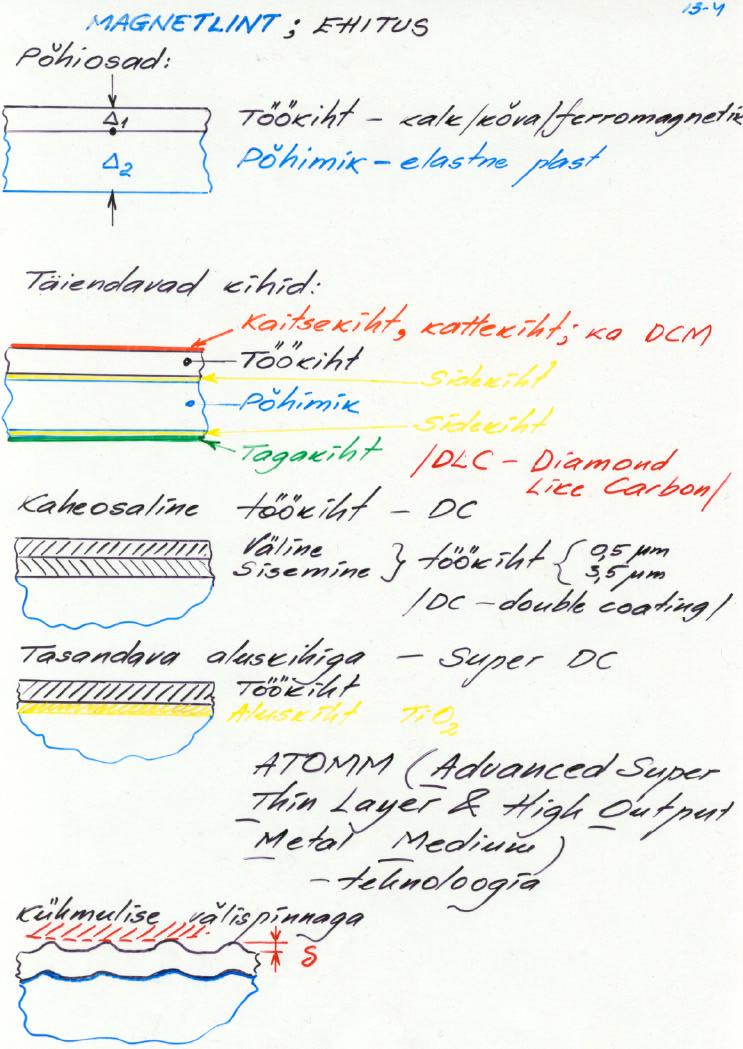 13-4
MAGNETLINT; EHITUS
Põhiosad:
Δ1
Töökiht – kalk/kõva/ferromagnetik
Δ2
Põhimik – elastne plast
Täiendavad kihid:
Kaitsekiht, kattekiht; ka DCM
Töökiht
Sidekiht
Põhimik
Sidekiht
Tagakiht
/DLC – Diamond
Like Carbon/
Kaheosaline töökiht – DC
Väline
Sisemine } töökiht { 0,5 µm
3,5 µm
/DC – double coating/
Tasandava aluskihiga – Super DC
Töökiht
Aluskiht TiO2
ATOMM (Advanced Super
Thin Layer & High Output
Metal Medium)
– tehnoloogia
Kühmulise välispinnaga
δ